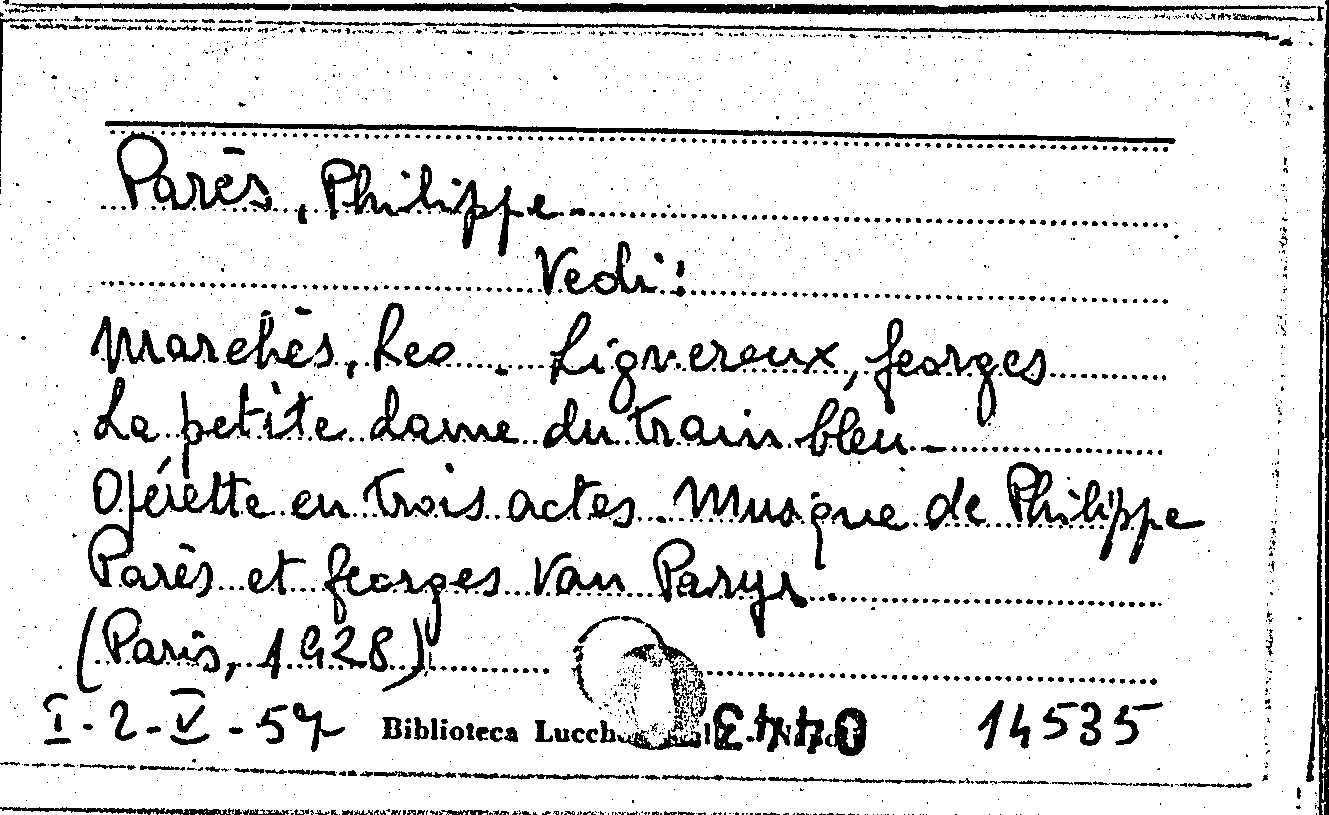 Parès, Philippe -
Vedi:
Marchès, Leo. Lignereux, Georges
La petite dame du train bleu -
Opérette en trois actes. Musique de Philippe
Parès et Georges Van Parys.
(Paris, 1928)
I-2-V-57 Biblioteca 0443 14535